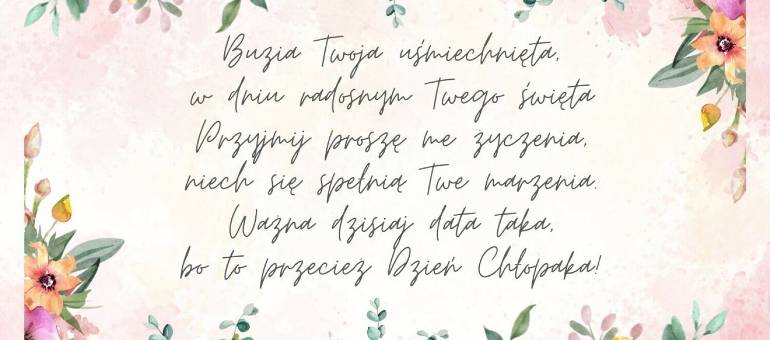 Buzia Twoja uśmiechnięta,
w dniu radosnym Twego święta
Przyjmij proszę me życzenia,
niech się spełnią Twe marzenia.
Ważna dzisiaj data taka,
bo to przecież Dzień Chłopaka!